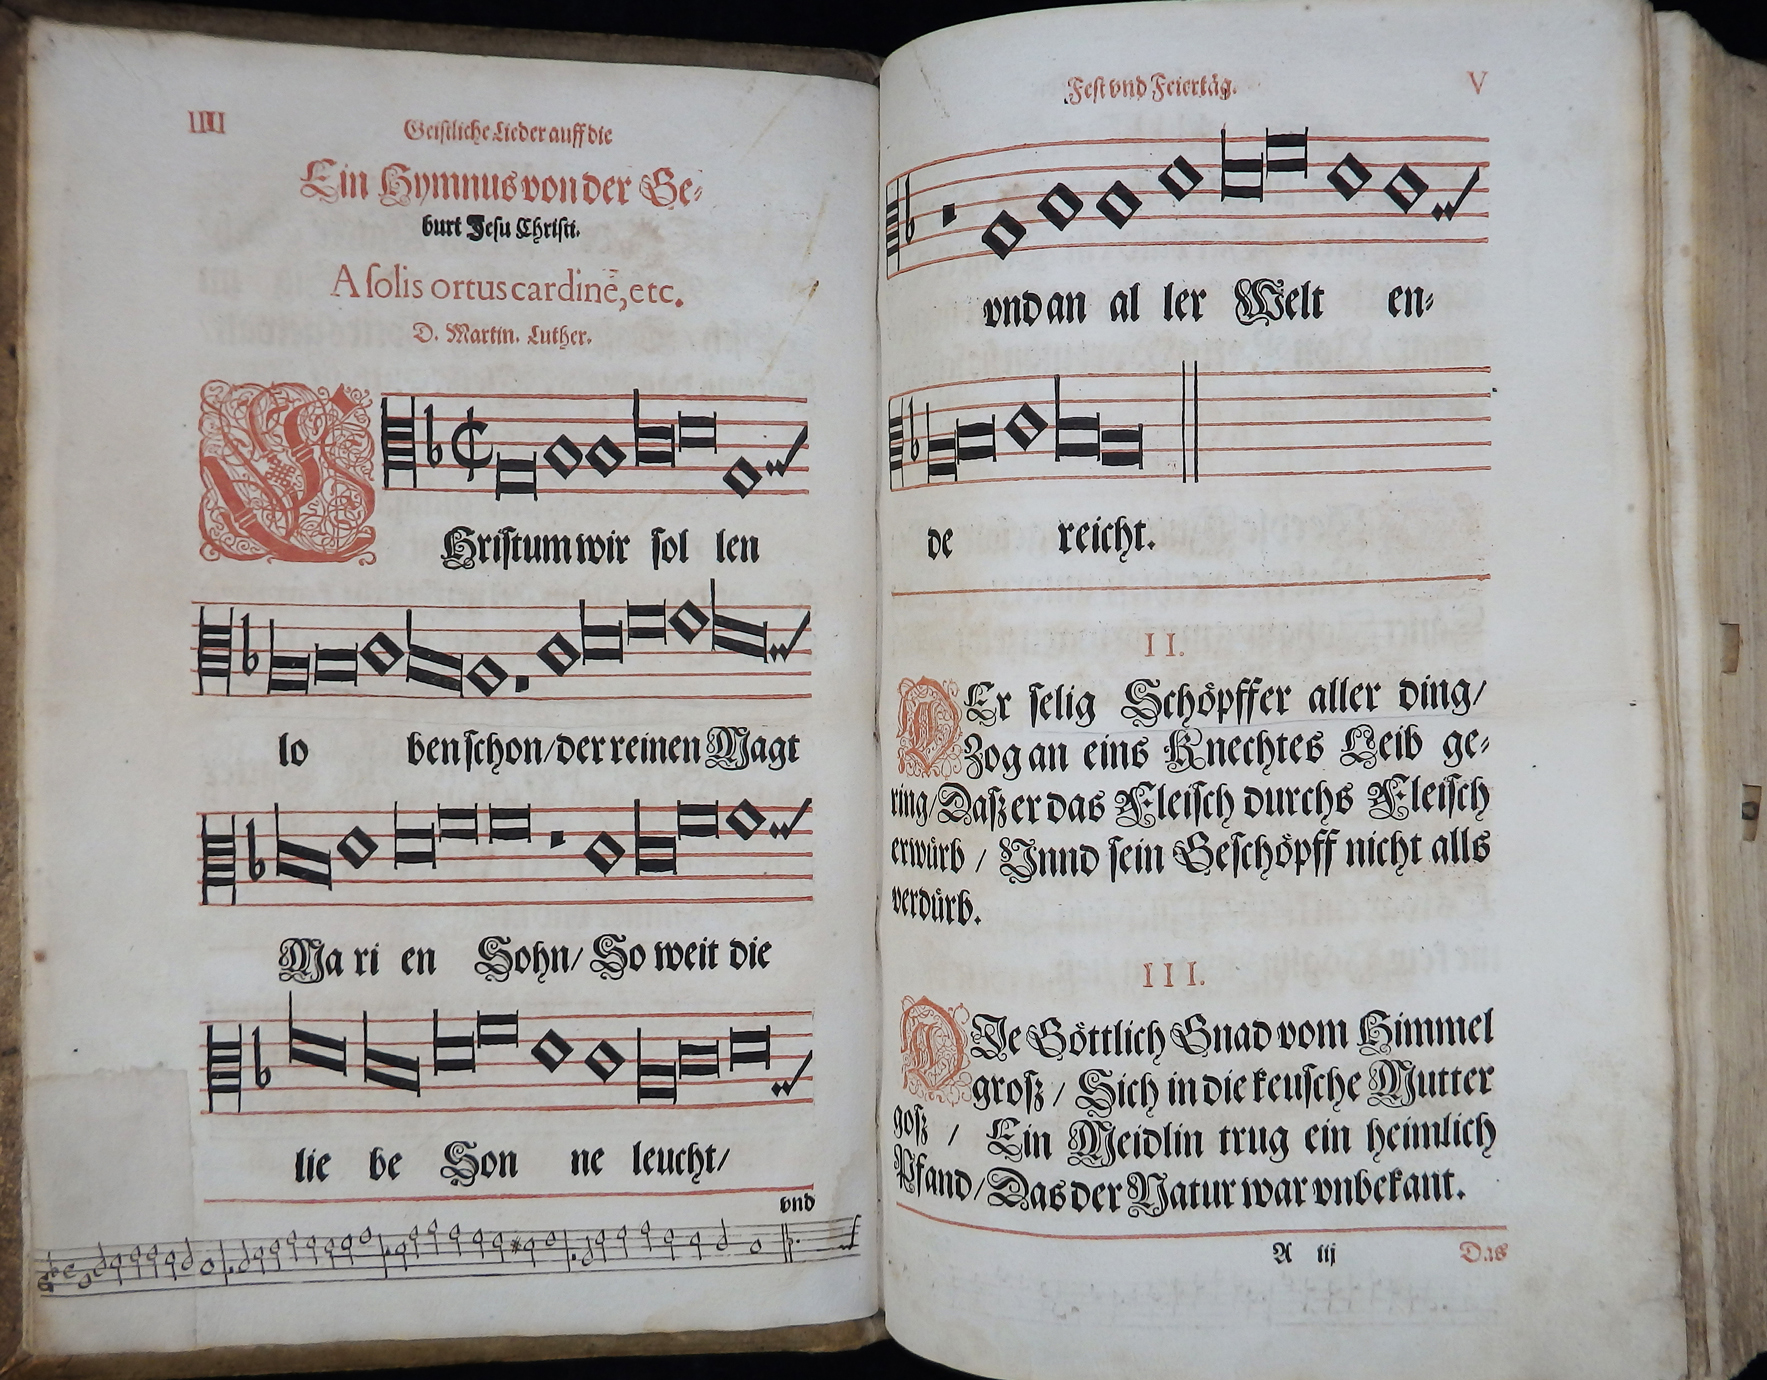 IIII
Geistliche Lieder auff die
Ein Hymnus von der Ge-
burt Jesu Christi.
A solis ortus cardinē, etc.
D. Martin. Luther.
CHristum wir sol len
lo ben schon/ der reinen Magt
Ma ri en Sohn/ So weit die
lie be Son ne leucht/
vnd
Fest vnd Feiertäg.
V
vnd an al ler Welt en-
de reicht.
II.
DEr selig Schöpffer aller ding/
Zog an eins Knechtes Leib ge-
ring/ Dasz er das Fleisch durchs Fleisch
erwürb / Vnnd sein Geschöpff nicht alls
verdürb.
III.
DJe Göttlich Gnad vom Himmel
grosz / Sich in die keusche Mutter
gosz / Ein Meidlin trug ein heimlich
Pfand/ Das der Natur war vnbekant.
A iij
Das